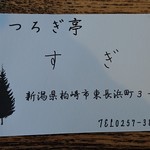 つろぎ亭
すぎ
新潟県柏崎市東長浜町3-
TEL0257-3